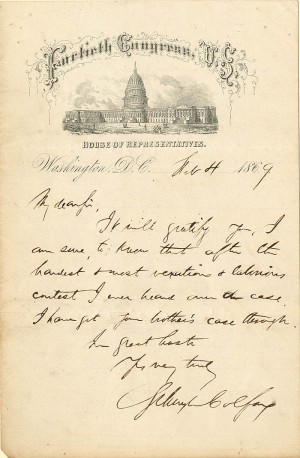 Fortieth Congress, U.S.
HOUSE OF REPRESENTATIVES.
Washington, D.C. Feb 4 1869
My dear Sir,
It will gratify you, I
am sure, to know that after the
hardest & most vexatious & laborious
contest I ever heard over one case,
I have got your brother's case through.
In great haste
Yrs very truly
Schuyler Colfax